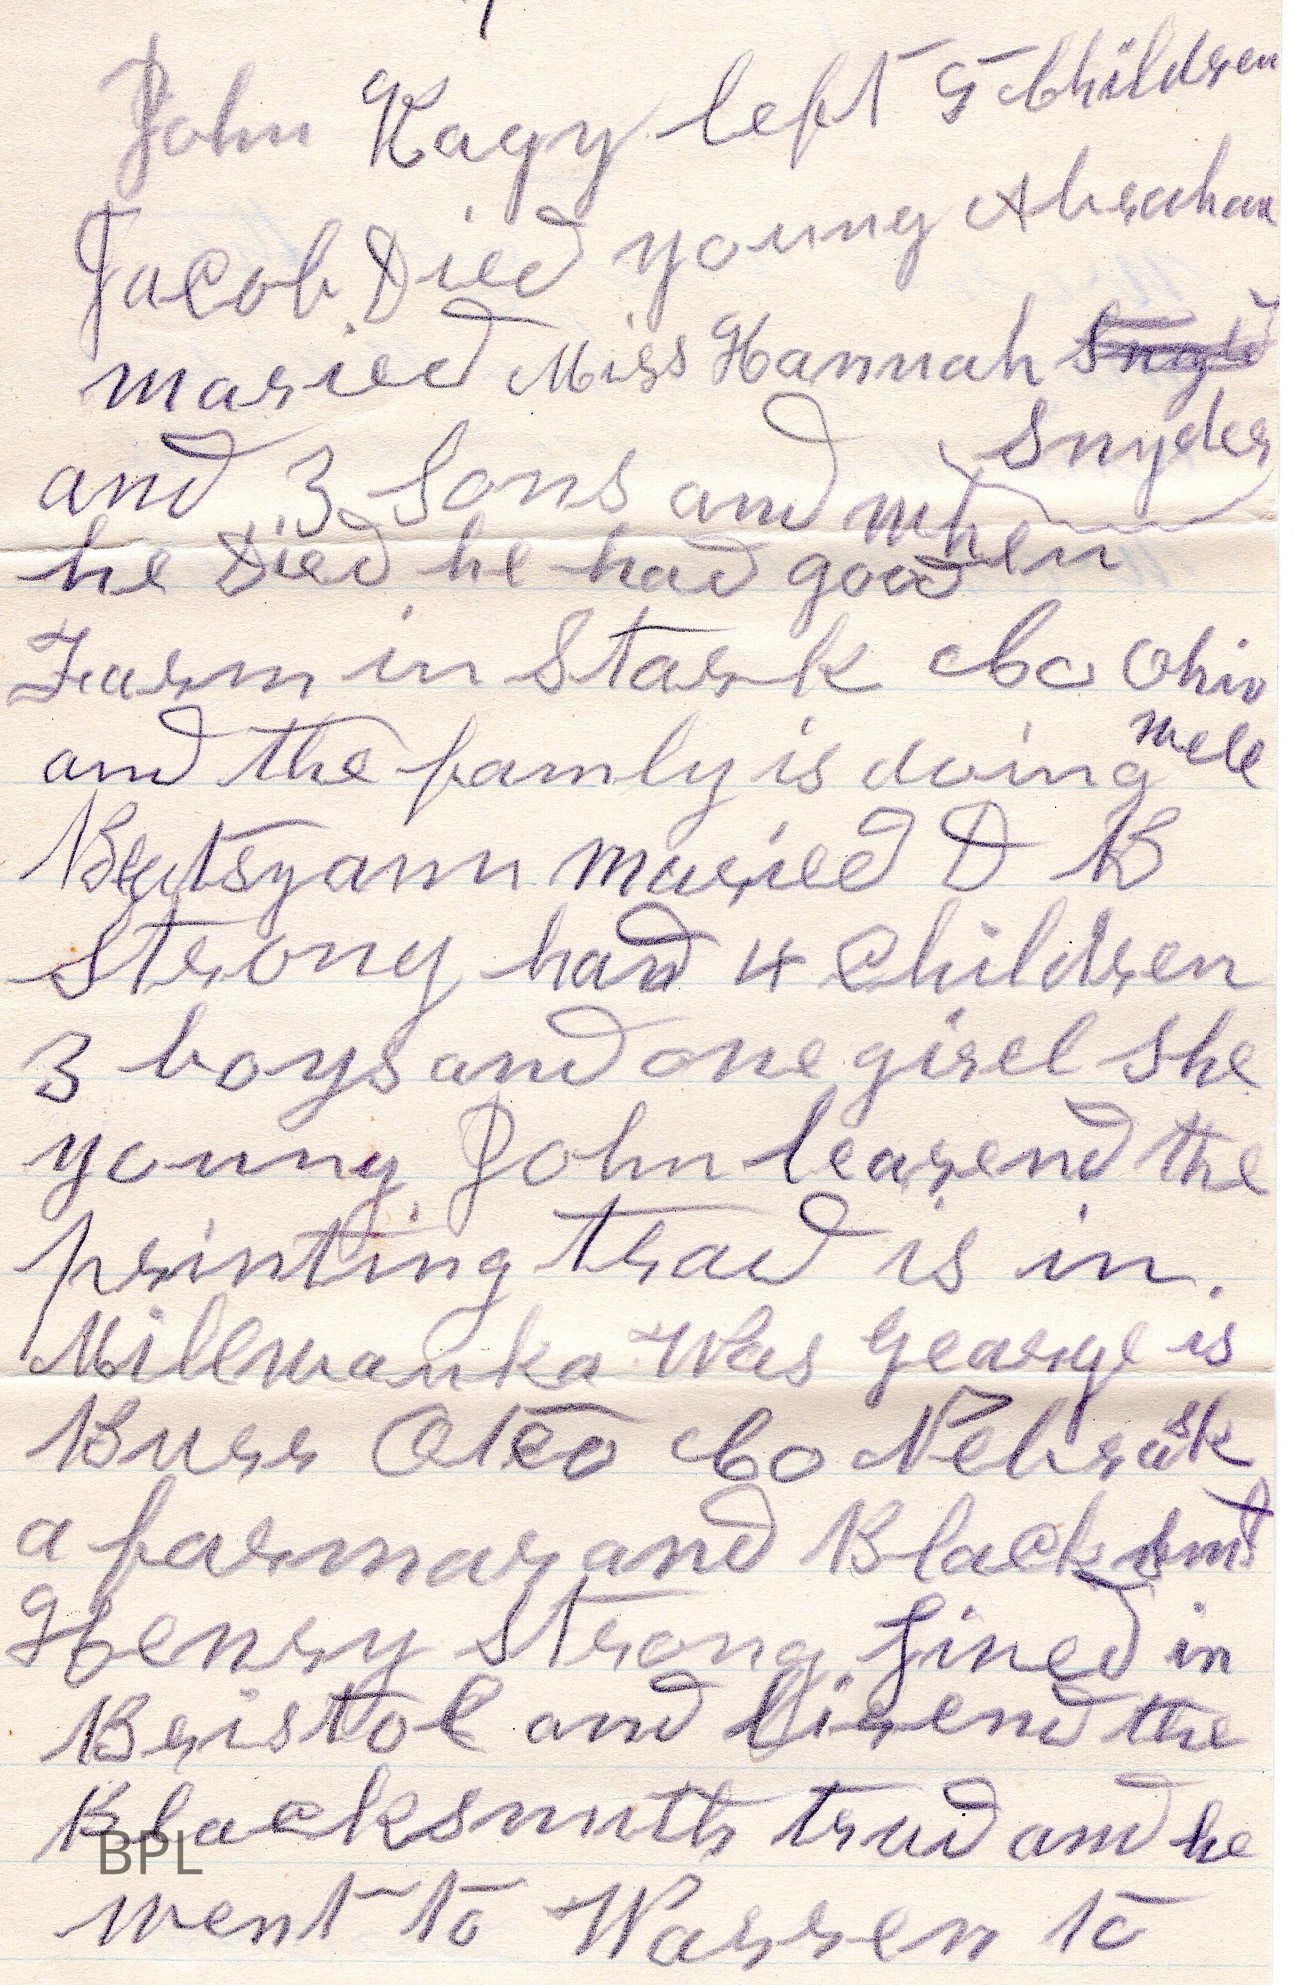 John Kagy left 5 Children
Jacob Died young Abraham
maried Miss Hannah
Snyder
and 3 Sons and when
he Died he had good
Farm in Stark Co Ohio
and the famly is doing well
Beatsyann maried D B
Strong had 4 Children
3 boys and one girel She
young John learend the
printing trad is in.
Millwauka Was George is
Burr Oteo Co Nebrask
a farmar and Black smt
Henry Strong Lined in
Bristol and lirend the
Blacksmith trad and he
went to Warren to
BPL